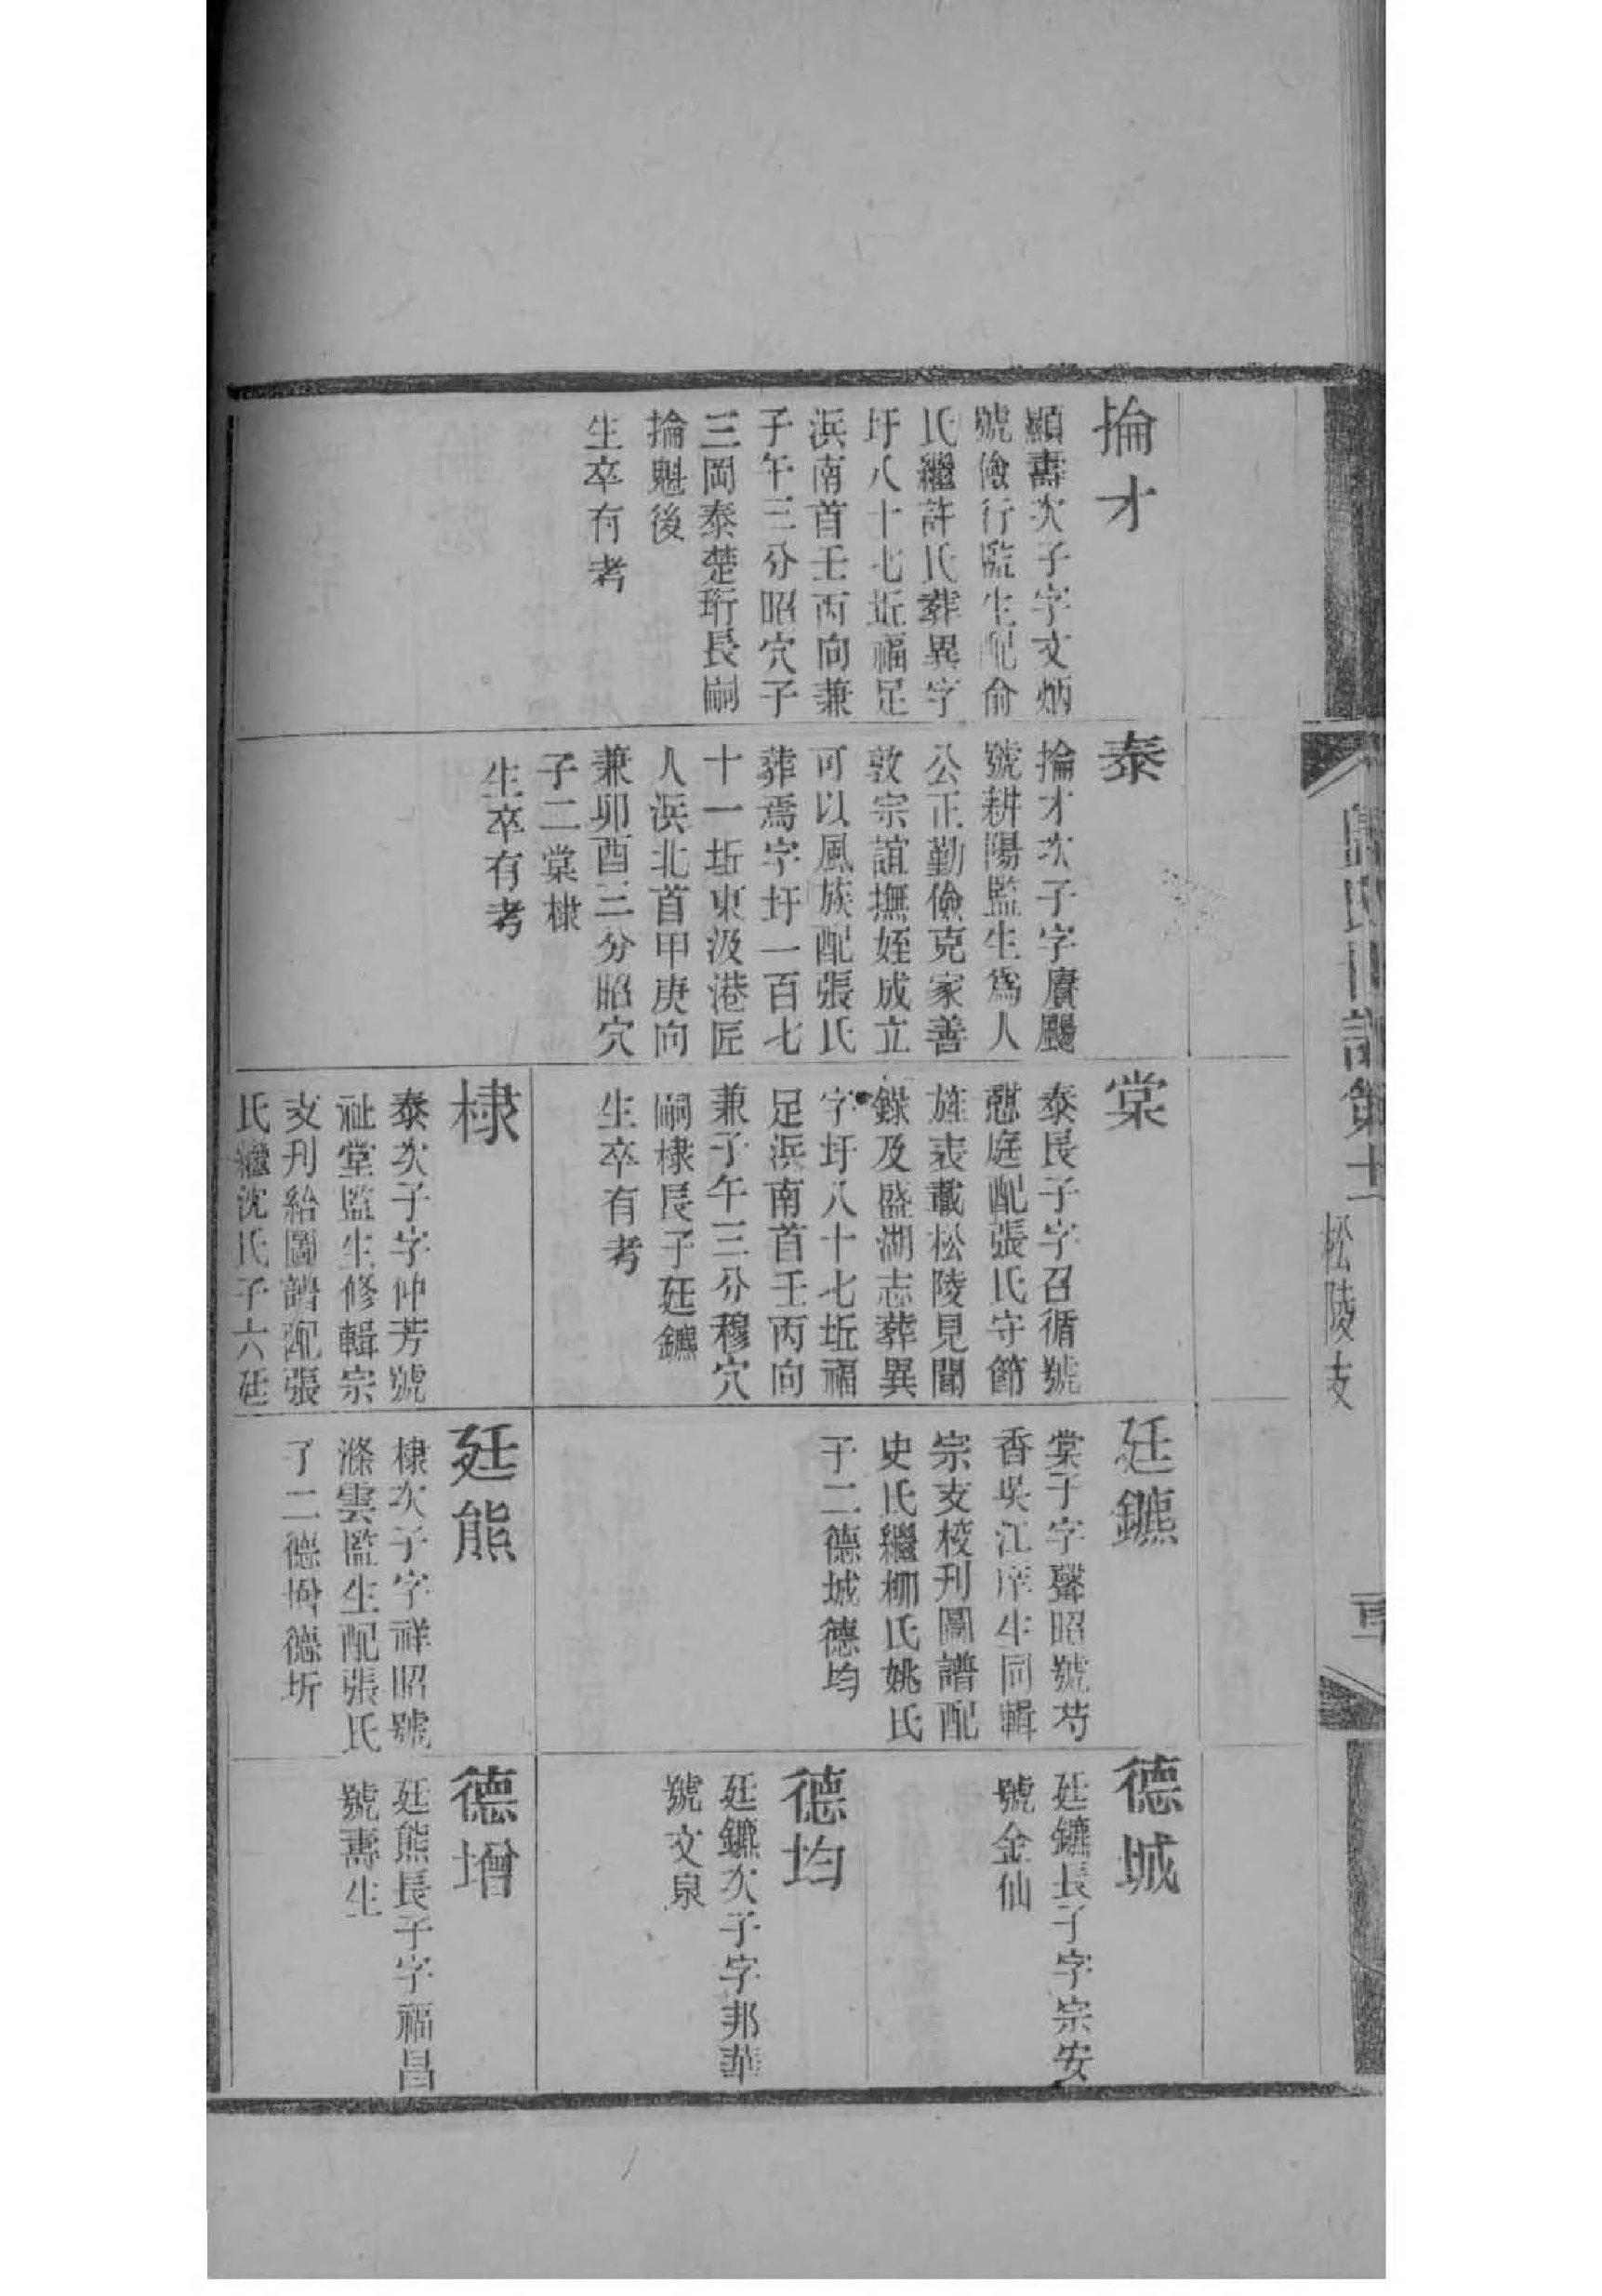 掄才
顯壽次子字文炳
號儉行監生配俞
氏繼許氏葬異字
圩八十七坵福足
浜南首壬丙向兼
子午三分昭穴子
三岡泰楚珩長嗣
掄魁後
生卒有考
泰
掄才次子字賡颺
號耕陽監生爲人
公正勤儉克家善
敦宗誼撫姪成立
可以風族配張氏
葬焉字圩一百七
十一坵東汲港匠
人浜北首甲庚向
兼卯酉三分昭穴
子二棠棣
生卒有考
棠
泰長子字召循號
憇庭配張氏守節
旌表載松陵見聞
錄及盛湖志葬異
字圩八十七坵福
足浜南首壬丙向
兼子午三分穆穴
嗣棣長子廷鑣
生卒有考
棣
泰次子字仲芳號
祉堂監生修輯宗
支刊給圖譜配張
氏繼沈氏子六廷
廷鑣
棠子字聲昭號芍
香吳江庠生同輯
宗支校刊圖譜配
史氏繼柳氏姚氏
子二德城德均
廷熊
棣次子字祥昭號
滌雲監生配張氏
子二德增德圻
德城
廷鑣長子字宗安
號金仙
德均
廷鑣次子字邦華
號文泉
德增
廷熊長子字福昌
號壽生
氏世譜第十
松陵支